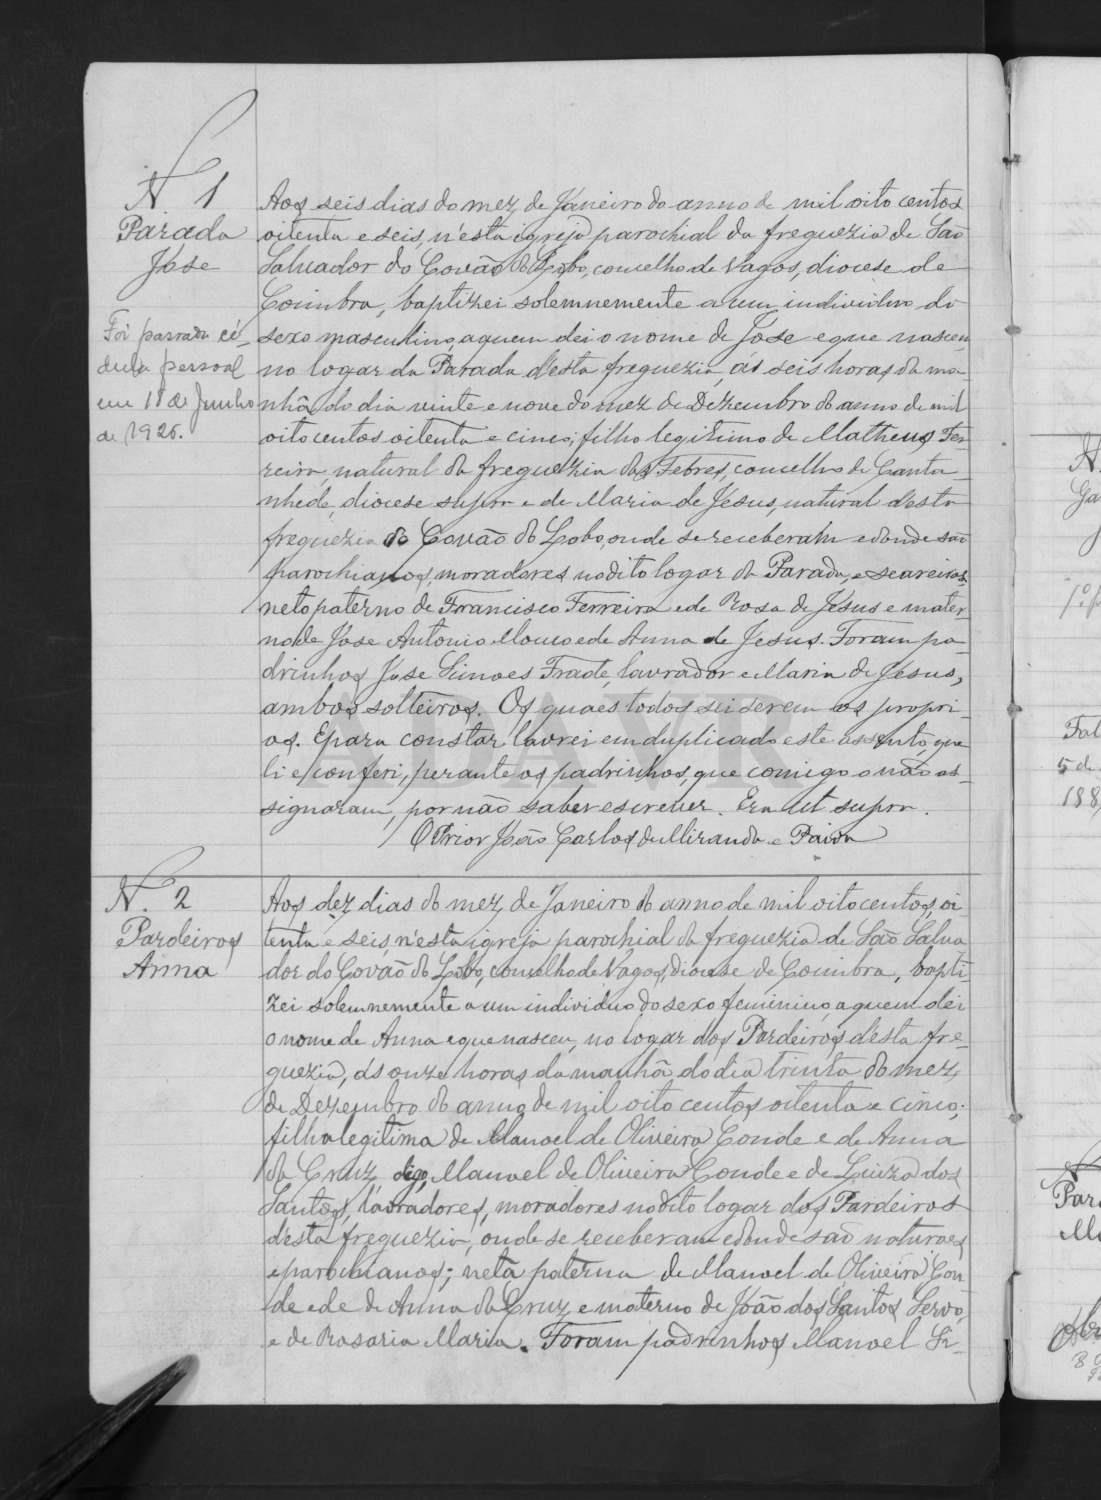 N. 1
Parada
José
Foi passada cé-
dula pessoal
em 18 de Junho
de 1925.
Aos seis dias do mez de Janeiro do anno de mil oito centos
oitenta e seis, n'esta igreja parochial da freguezia de São
Salvador do Covão do Lobo, concelho de Vagos, diocese de
Coimbra, baptizei solemnemente a um individuo do
sexo masculino, a quem dei o nome de José e que nasceu
no logar da Parada d'esta freguezia, ás seis horas da ma-
nhã do dia vinte e nove do mez de Dezembro do anno de mil
oitocentos oitenta e cinco; filho legitimo de Matheus Fer-
reira, natural da freguezia das Febres, concelho de Canta-
nhede, diocese supra e de Maria de Jesus, natural d'esta
freguezia do Covão do Lobo, onde se receberam e donde são
parochianos, moradores no dito logar da Parada, e seareiros,
neto paterno de Francisco Ferreira e de Rosa de Jesus e mater-
no de José Antonio Mouco e de Anna de Jesus. Foram pa-
drinhos José Simoes Frade, lavrador e Maria de Jesus,
ambos solteiros. Os quaes todos sei serem os propri-
os. E para constar lavrei em duplicado este assento, que
li e conferi, perante os padrinhos, que comigo o não as-
signaram, por não saber escrever. Era ut supra.
O Prior João Carlos de Miranda e Paiva
N. 2
Pardeiros
Anna
Aos dez dias do mez de Janeiro do anno de mil oito centos, oi-
tenta e seis, n'esta igreja parochial da freguezia de São Salva
dor do Covão do Lobo, concelho de Vagos, diocese de Coimbra, bapti-
zei solemnemente a um individuo do sexo feminino, a quem dei
o nome de Anna e que nasceu, no logar dos Pardeiros d'esta fre-
guezia, ás onze horas da manhã do dia trinta do mez
de Dezembro do anno de mil oito centos oitenta e cinco;
filha legitima de Manoel de Oliveira Conde e de Anna
da Cruz, digo, Manoel de Oliveira Conde e de Luiza dos
Santos, lavradores, moradores no dito logar dos Pardeiros
d'esta freguezia, onde se receberam e donde são naturaes
e parochianos; neta paterna de Manoel de Oliveira Con-
de e de de Anna da Cruz e materno de João dos Santos Servo,
e de Rosaria Maria. Foram padrinhos Manoel Si-
Fal
5 de
188
ADAVR